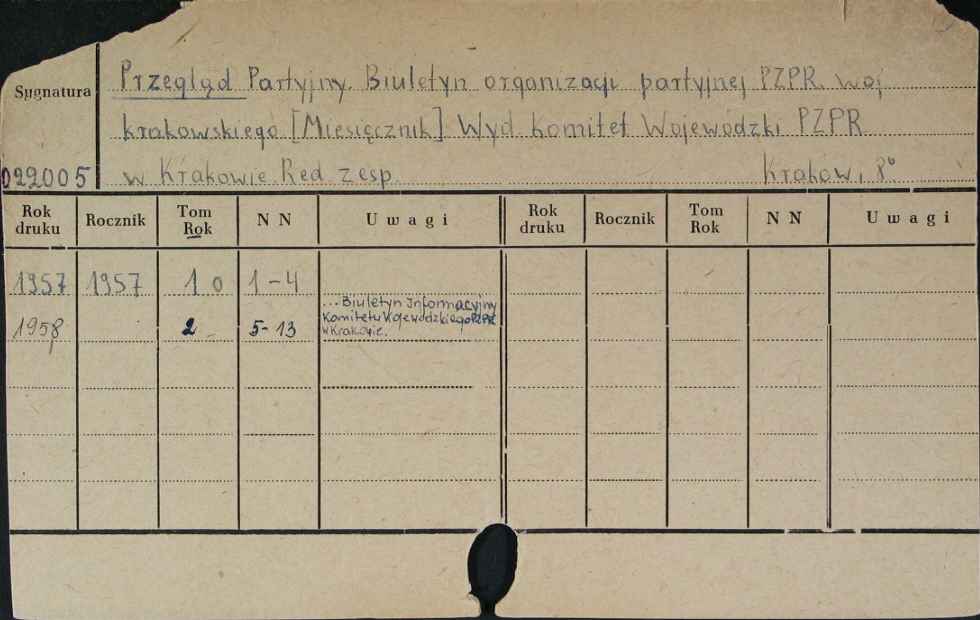 Sygnatura
Przegląd Partyjny. Biuletyn organizacji partyjnej PZPR woj
krakowskiego [Miesięcznik] Wyd Komitet Wojewódzki PZPR
022005 w Krakowie Red zesp. Kraków, 8°
Rok druku Rocznik Tom Rok N N Uwagi Rok druku Rocznik Tom Rok N N Uwagi
1957 1957 1 0 1-4
1958 2 5-13 ...Biuletyn Informacyjny
Komitetu Wojewódzkiego PZPR
w Krakowie.